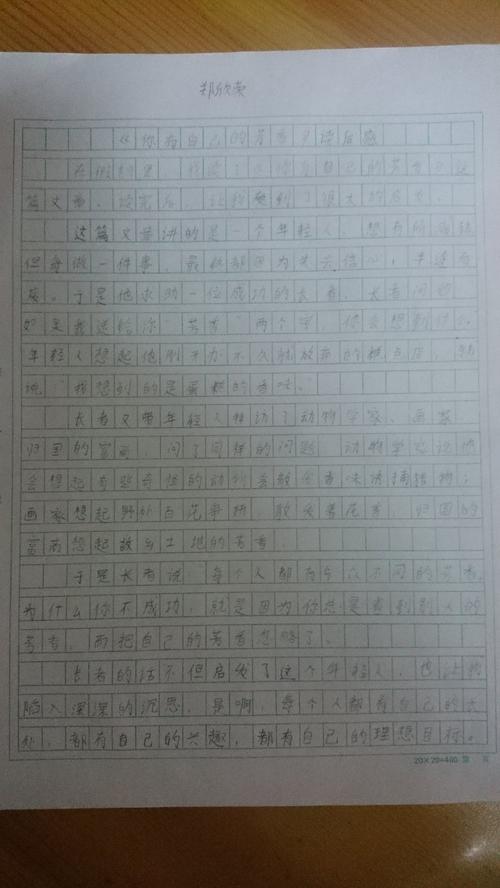 郑欣荣
《你有自己的芳香》读后感
在假期里，我读了《你有自己的芳香》这
篇文章，读完后，让我受到了很大的启发。
这篇文章讲的是一个年轻人，想有所成绩
但每做一件事，最终都因为失去信心，半途而
废。于是他求助一位成功的长者。长者问他
如果我送给你"芳香"两个字，你会想到什么
年轻人想起他刚开办不久就放弃的糕点店，就
说："我想到的是蛋糕的香味。"
长者又带年轻人拜访了动物学家、画家、
归国的富商，问了同样的问题，动物学家说他
会想起有些奇怪的动物会散发香味诱捕猎物；
画家想起野外百花争艳，散发着花香；归国的
富商想起故乡土地的芳香。
于是长者说：每个人都有与众不同的芳香，
为什么你不成功，就是因为你总是看到别人的
芳香，而把自己的芳香忽略了。
长者的话不但启发了这个年轻人，也让我
陷入深深的沉思。是啊，每个人都有自己的长
处，都有自己的兴趣，都有自己的理想目标。
20×20=400 第 页